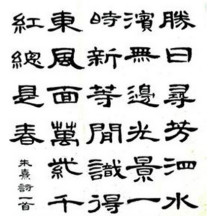 勝日尋芳泗水
濱無邊光景一
時新等閒識得
東風面萬紫千
紅總是春
朱熹詩一首